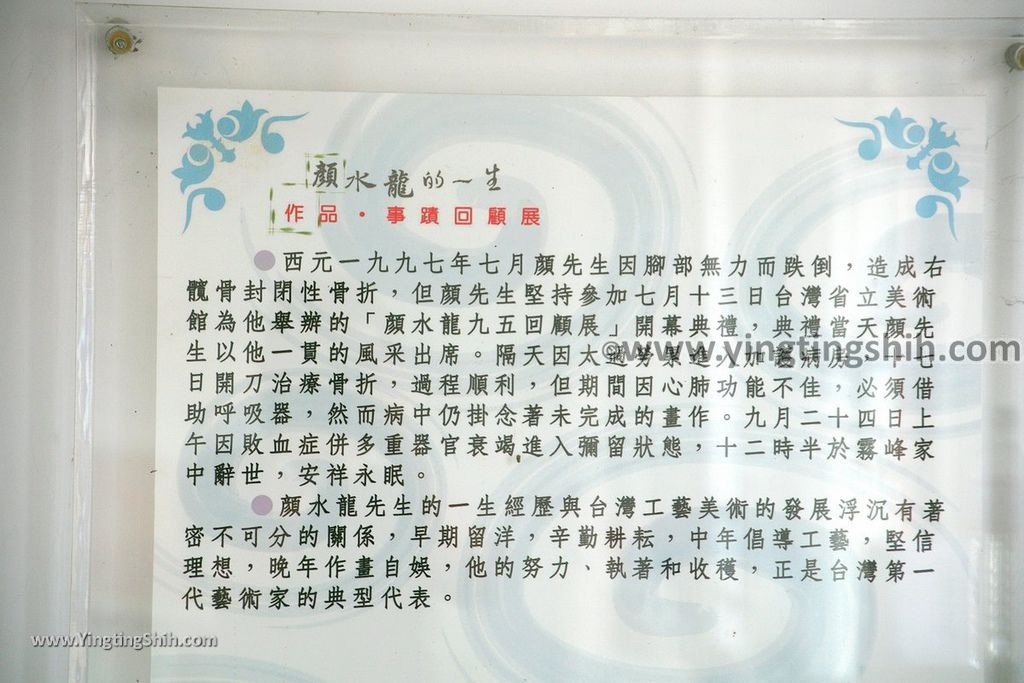 顏水龍的一生
作品・事蹟回顧展
●西元一九九七年七月顏先生因腳部無力而跌倒，造成右
髖骨封閉性骨折，但顏先生堅持參加七月十三日台灣省立美術
館為他舉辦的「顏水龍九五回顧展」開幕典禮，典禮當天顏先
生以他一貫的風采出席。隔天因太過勞累進入加護病房，十七
日開刀治療骨折，過程順利，但期間因心肺功能不佳，必須借
助呼吸器，然而病中仍掛念著未完成的畫作。九月二十四日上
午因敗血症併多重器官衰竭進入彌留狀態，十二時半於霧峰家
中辭世，安祥永眠。
●顏水龍先生的一生經歷與台灣工藝美術的發展浮沉有著
密不可分的關係，早期留洋，辛勤耕耘，中年倡導工藝，堅信
理想，晚年作畫自娛，他的努力、執著和收穫，正是台灣第一
代藝術家的典型代表。
©www.yingtingshih.com
www.YingtingShih.com